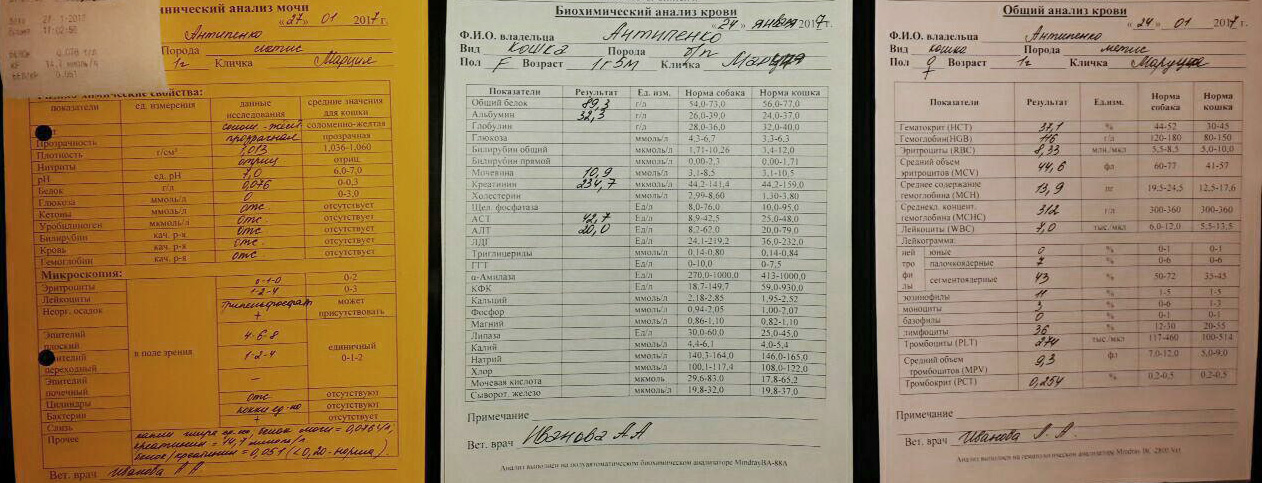 27-1-2017
17:02:56
0,076 г/л
14,7 ммоль/л
0,051
Клинический анализ мочи
«27» 01 2017 г.
Антипенко
Порода метис
1г Кличка
Физико-химические свойства:
показатели ед. измерения данные исследования средние значения для кошки
солом.-желт соломенно-желтая
Прозрачность прозрачная прозрачная
Плотность г/см³ 1,013 1,036-1,060
Нитриты отриц отриц.
pH ед. pH 7,0 6,0-7,0
Белок г/л 0,076 0-0,3
Глюкоза ммоль/л 0 0-3,0
Кетоны ммоль/л отс отсутствует
Уробилиноген мкмоль/л отс отсутствует
Билирубин кач. р-я отс отсутствует
Кровь кач. р-я отс отсутствует
Гемоглобин кач. р-я отс отсутствует
Микроскопия:
Эритроциты в поле зрения 0-1-0 0-2
Лейкоциты 1-2-4 0-3
Неорг. осадок трипельфосфат + может присутствовать
Эпителий плоский 4-6-8 единичный 0-1-2
Эпителий переходный 1-2-4
Эпителий почечный –
Цилиндры отс отсутствуют
Бактерии кокки ед-но отсутствуют
Слизь + отсутствует
Прочее капли жира ед-но, белок мочи = 0,076 г/л,
креатинин = 14,7 ммоль/л
белок/креатинин = 0,051 (<0,20-норма)
Вет. врач Иванова А.А.
Биохимический анализ крови
«24» января 2017 г.
Ф.И.О. владельца Антипенко
Вид кошка Порода б/п
Пол F Возраст 1г5м Кличка
Показатели Результат Ед. изм. Норма собака Норма кошка
Общий белок 89,3 г/л 54,0-73,0 56,0-77,0
Альбумин 32,3 г/л 26,0-39,0 24,0-37,0
Глобулин г/л 28,0-36,0 32,0-40,0
Глюкоза ммоль/л 4,3-6,7 3,3-6,3
Билирубин общий мкмоль/л 1,71-10,26 3,4-12,0
Билирубин прямой мкмоль/л 0,00-2,3 0,00-1,71
Мочевина 10,9 ммоль/л 3,1-8,5 3,1-10,5
Креатинин 234,7 мкмоль/л 44,2-141,4 44,2-159,0
Холестерин ммоль/л 2,99-8,60 1,30-3,80
Щел. фосфатаза Ед/л 8,0-76,0 10,0-95,0
АСТ 42,7 Ед/л 8,9-42,5 25,0-48,0
АЛТ 20,0 Ед/л 8,2-62,0 20,0-79,0
ЛДГ Ед/л 24,1-219,2 36,0-232,0
Триглицериды ммоль/л 0,14-0,80 0,14-0,84
ГГТ Ед/л 0-10,0 0-7,5
α-Амилаза Ед/л 270,0-1000,0 413-1000,0
КФК Ед/л 18,7-149,7 59,0-930,0
Кальций ммоль/л 2,18-2,85 1,95-2,52
Фосфор ммоль/л 0,94-2,05 1,00-2,07
Магний ммоль/л 0,86-1,10 0,82-1,10
Липаза Ед/л 30,0-60,0 25,0-45,0
Калий ммоль/л 4,4-6,1 4,0-5,4
Натрий ммоль/л 140,3-164,0 146,0-165,0
Хлор ммоль/л 100,1-117,4 108,0-122,0
Мочевая кислота мкмоль 29,6-83,0 17,8-65,2
Сыворот. железо мкмоль/л 19,8-32,0 19,8-37,0
Примечание
Вет. врач Иванова А А
Анализ выполнен на полуавтоматическом биохимическом анализаторе Mindray BA-88A
Общий анализ крови
«24» 01 2017 г.
Ф.И.О. владельца Антипенко
Вид кошка Порода метис
Пол ♀ Возраст 1г Кличка Маруся
Показатели Результат Ед.изм. Норма собака Норма кошка
Гематокрит (HCT) 37,1 % 44-52 30-45
Гемоглобин(HGB) 116 г/л 120-180 80-150
Эритроциты (RBC) 8,33 млн./мкл 5,5-8,5 5,0-10,0
Средний объем эритроцитов (MCV) 44,6 фл 60-77 41-57
Среднее содержание гемоглобина (MCH) 13,9 пг 19,5-24,5 12,5-17,6
Среднекл. концент. гемоглобина (MCHC) 312 г/л 300-360 300-360
Лейкоциты (WBC) 8,0 тыс/мкл 6,0-12,0 5,5-13,5
Лейкограмма:
нейтрофилы юные 0 % 0-1 0-1
палочкоядерные 7 % 0-6 0-6
сегментоядерные 43 % 50-72 35-45
эозинофилы 11 % 1-5 1-5
моноциты 3 % 0-6 1-3
базофилы 0 % 0-1 0-1
лимфоциты 36 % 12-30 20-55
Тромбоциты (PLT) 274 тыс/мкл 117-460 100-514
Средний объем тромбоцитов (MPV) 9,3 фл 7,0-12,0 5,0-9,0
Тромбокрит (PCT) 0,254 % 0,2-0,5 0,2-0,5
Примечание
Вет. врач Иванова А. А.
Анализ выполнен на гематологическом анализаторе Mindray BC 2800 Vet